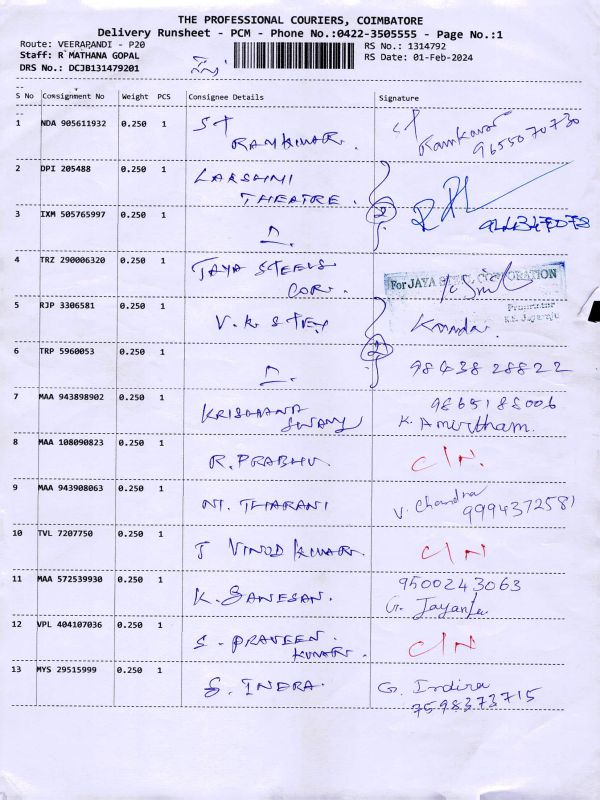 THE PROFESSIONAL COURIERS, COIMBATORE
Delivery Runsheet - PCM - Phone No.:0422-3505555 - Page No.:1
Route: VEERAPANDI - P20 RS No.: 1314792
Staff: R MATHANA GOPAL RS Date: 01-Feb-2024
DRS No.: DCJB131479201
S No Consignment No Weight PCS Consignee Details Signature
1 NDA 905611932 0.250 1 ST
RAMKUMAR. Ramkumar
9655070730
2 DPI 205488 0.250 1 LAKSHMI
THEATRE. 2
3 IXM 505765997 0.250 1
4 TRZ 290006320 0.250 1 JAYA STEELS For JAYA STEEL CORPORATION
COR. Proprietor
5 RJP 3306581 0.250 1 V.K STEY
6 TRP 5960053 0.250 1 2 98438 28822
7 MAA 943898902 0.250 1 KRISHANA 9865188006
SWAMY K. Amirtham.
8 MAA 108090823 0.250 1 R. PRABHU C/N.
9 MAA 943908063 0.250 1 M. THARANI V. Chandra
9994372581
10 TVL 7207750 0.250 1 J VINOD KUMAR. C/N
11 MAA 572539930 0.250 1 K. GANESAN. 9500243063
G. Jayanthi
12 VPL 404107036 0.250 1 S. PRAVEEN. C/N
KUMAR.
13 MYS 29515999 0.250 1 G. INDRA. G. Indira
7598373715